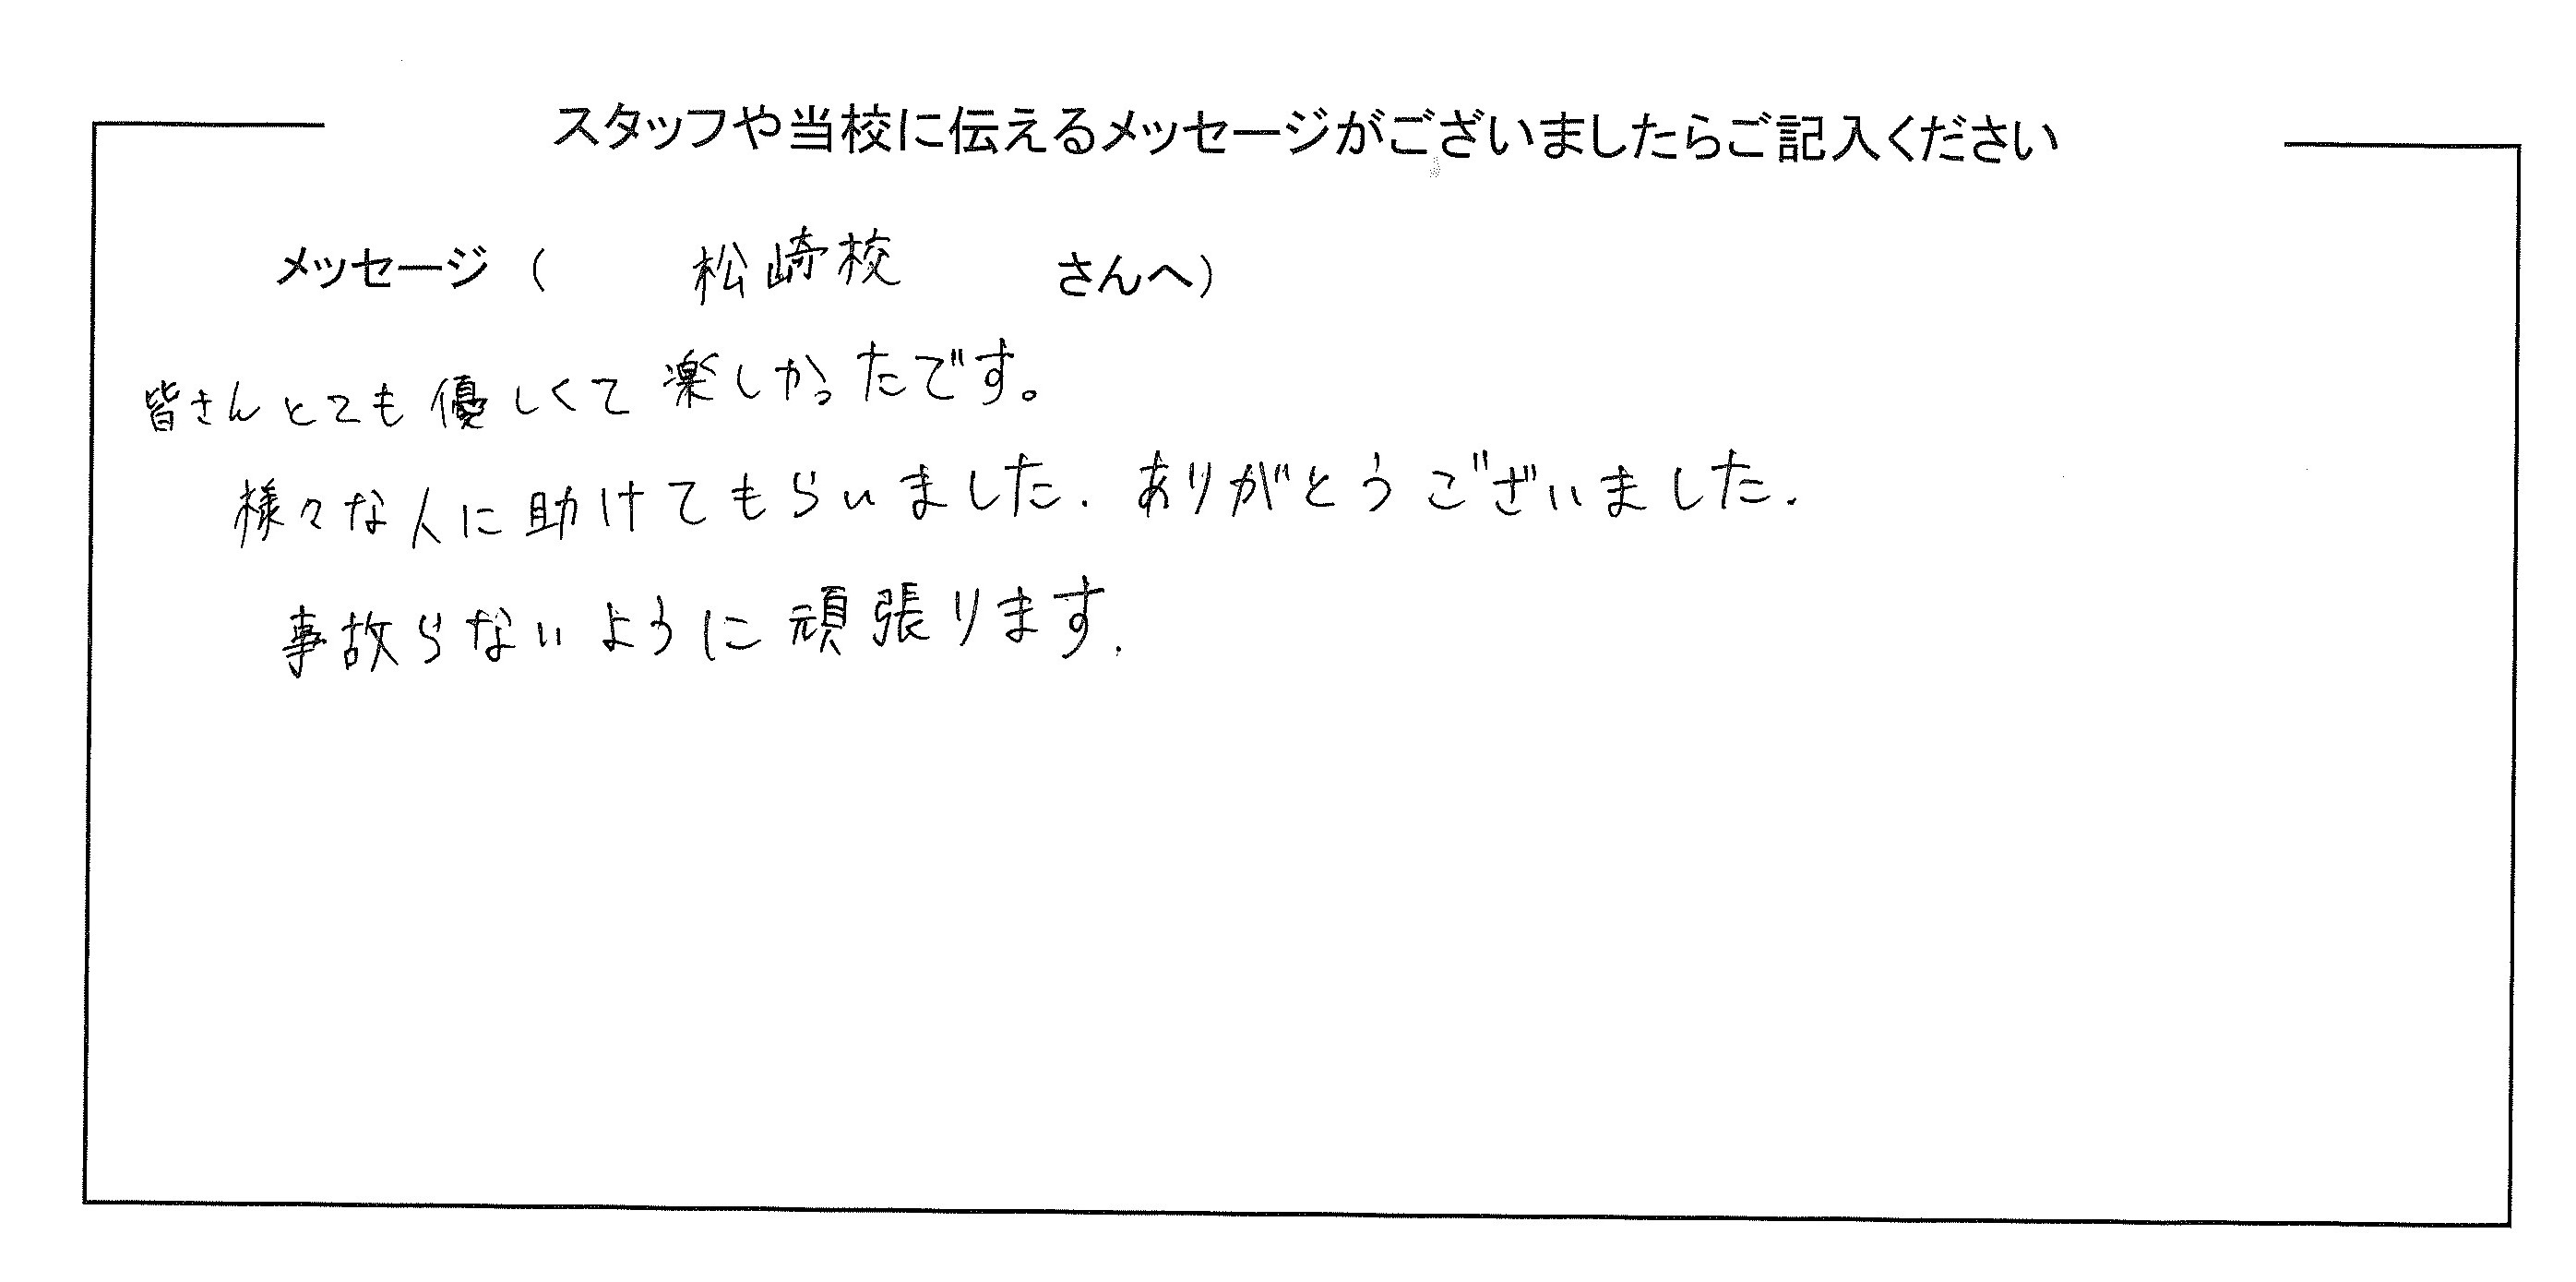 スタッフや当校に伝えるメッセージがございましたらご記入ください
メッセージ（ 松崎校 さんへ）
皆さんとても優しくて楽しかったです。
様々な人に助けてもらいました. ありがとうございました.
事故らないように頑張ります.